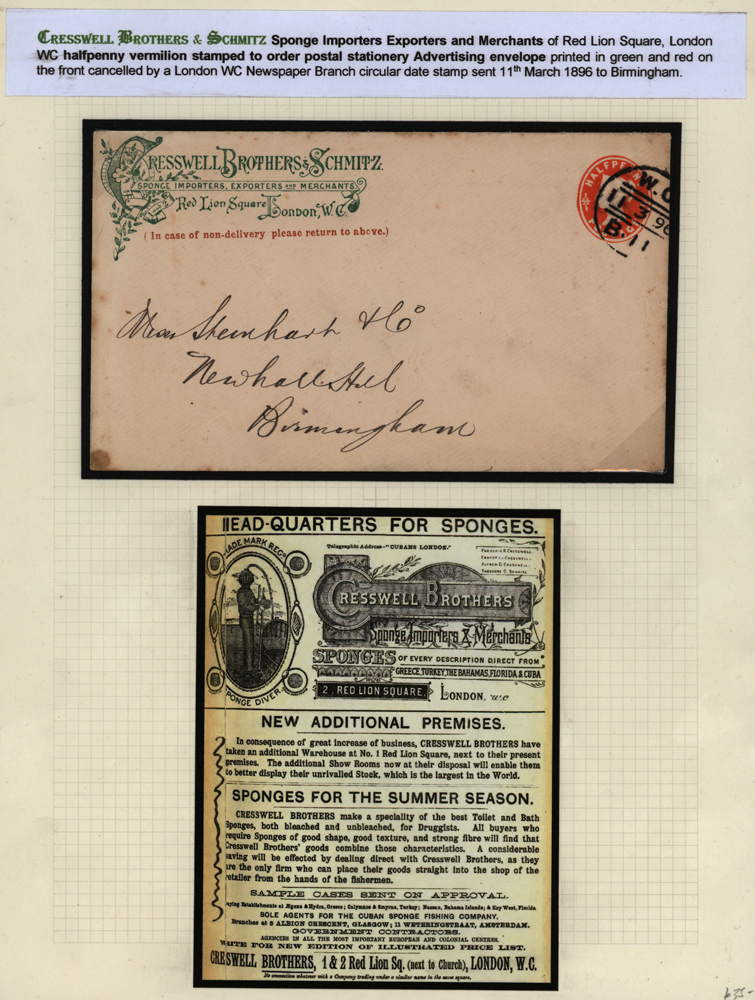 CRESSWELL BROTHERS & SCHMITZ Sponge Importers Exporters and Merchants of Red Lion Square, London
WC halfpenny vermilion stamped to order postal stationery Advertising envelope printed in green and red on
the front cancelled by a London WC Newspaper Branch circular date stamp sent 11th March 1896 to Birmingham.
CRESSWELL BROTHERS & SCHMITZ.
SPONGE IMPORTERS, EXPORTERS AND MERCHANTS
Red Lion Square London, W.C.
(In case of non-delivery please return to above.)
HALFPENNY
W.C
11.3.96
B.11
Messrs Steinhart & Co
Newhall Hill
Birmingham
HEAD-QUARTERS FOR SPONGES.
TRADE MARK REGD
Telegraphic Address-"CUBANS LONDON."
CRESSWELL BROTHERS
Sponge Importers & Merchants
SPONGES OF EVERY DESCRIPTION DIRECT FROM
GREECE, TURKEY, THE BAHAMAS, FLORIDA & CUBA
2, RED LION SQUARE, LONDON, W.C
SPONGE DIVER
NEW ADDITIONAL PREMISES.
In consequence of great increase of business, CRESSWELL BROTHERS have
taken an additional Warehouse at No. 1 Red Lion Square, next to their present
premises. The additional Show Rooms now at their disposal will enable them
to better display their unrivalled Stock, which is the largest in the World.
SPONGES FOR THE SUMMER SEASON.
CRESSWELL BROTHERS make a speciality of the best Toilet and Bath
Sponges, both bleached and unbleached, for Druggists. All buyers who
require Sponges of good shape, good texture, and strong fibre will find that
Cresswell Brothers' goods combine those characteristics. A considerable
saving will be effected by dealing direct with Cresswell Brothers, as they
are the only firm who can place their goods straight into the shop of the
retailer from the hands of the fishermen.
SAMPLE CASES SENT ON APPROVAL.
Buying Establishments at Ægena & Hydra, Greece; Calymnos & Smyrna, Turkey; Nassau, Bahama Islands; & Key West, Florida
SOLE AGENTS FOR THE CUBAN SPONGE FISHING COMPANY.
Branches at 3 ALBION CRESCENT, GLASGOW; 11 WETERINGSTRAAT, AMSTERDAM.
GOVERNMENT CONTRACTORS.
AGENCIES IN ALL THE MOST IMPORTANT EUROPEAN AND COLONIAL CENTRES.
WRITE FOR NEW EDITION OF ILLUSTRATED PRICE LIST.
CRESWELL BROTHERS, 1 & 2 Red Lion Sq. (next to Church), LONDON, W.C.
No connection whatever with a Company trading under a similar name in the same square.